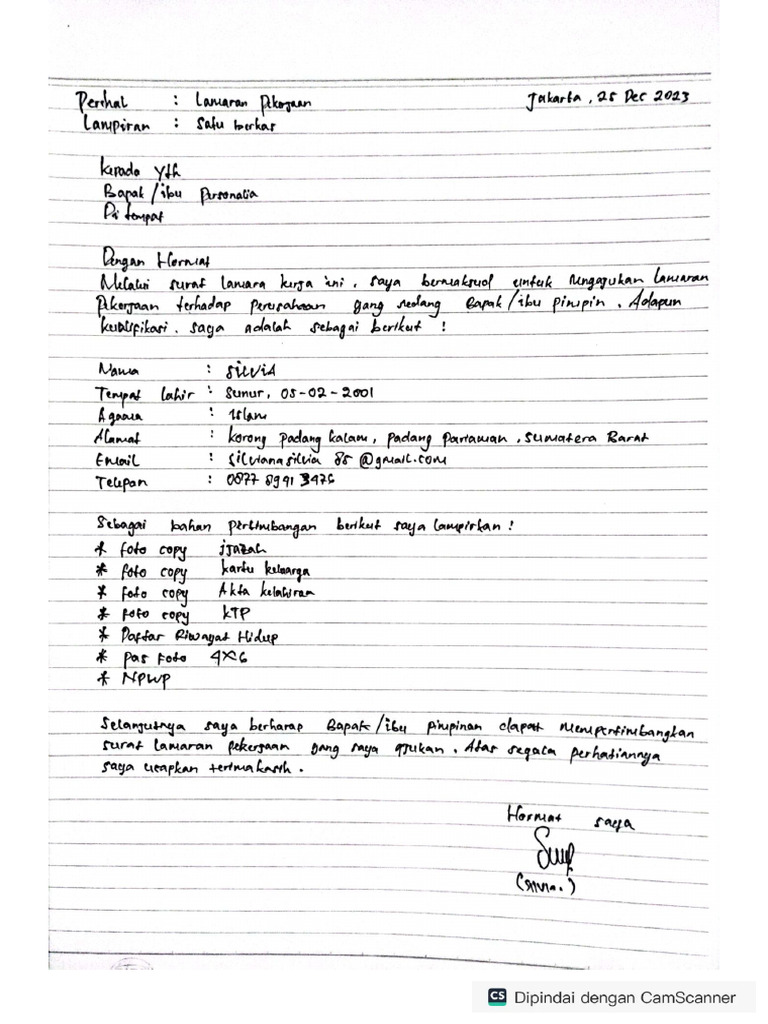 Perihal : Lamaran Pekerjaan
Jakarta, 25 Dec 2023
Lampiran : Satu berkas
Kepada Yth
Bapak/ibu Personalia
Di tempat
Dengan Hormat
Melalui surat lamara kerja ini, saya bermaksud untuk mengajukan lamaran
Pekerjaan terhadap perusahaan yang sedang Bapak/ibu pimpin. Adapun
kualifikasi saya adalah sebagai berikut :
Nama : SILVIA
Tempat lahir : Sunur, 05-02-2001
Agama : Islam
Alamat : korong padang kalam, padang pariaman, Sumatera Barat
Email : Silvianasilvia 85 @gmail.com
Telepon : 0877 8941 3476
Sebagai bahan pertimbangan berikut saya lampirkan :
* foto copy ijazah
* foto copy kartu keluarga
* foto copy Akta kelahiran
* foto copy KTP
* Daftar Riwayat Hidup
* pas foto 4x6
* NPWP
Selanjutnya saya berharap Bapak/ibu pimpinan dapat mempertimbangkan
surat lamaran pekerjaan yang saya ajukan. Atas segala perhatiannya
saya ucapkan terimakasih.
Hormat saya
(Silvia.)
CS Dipindai dengan CamScanner